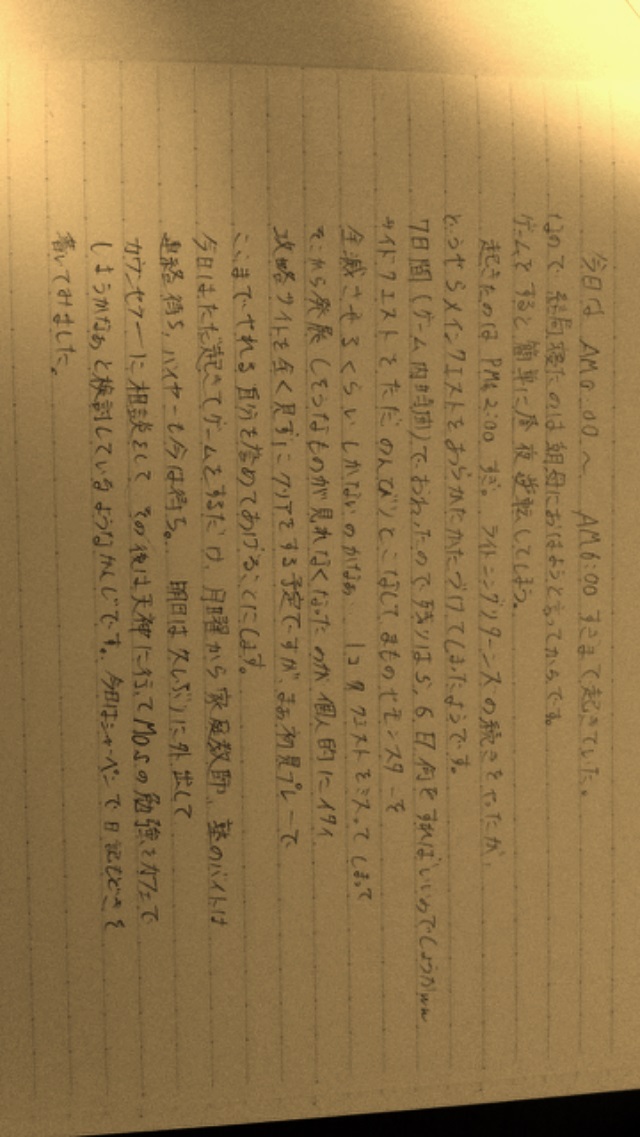 今日は AM0:00〜 AM6:00 すぎまで起きていた。
なので 結局寝たのは朝母におはようと言ってからです。
ゲームをすると簡単に昼夜逆転してしまう。
起きたのは PM2:00 すぎ。ライトニングリターンズの続きをやったが、
どうやらメインクエストをあらかたかたづけてしまったようです。
7日間(ゲーム内時間)でおわったので残りは5,6日何をすればいいのでしょうかww
サイドクエストをただのんびりとこなしてまものやモンスターを
全滅させるくらいしかないのかなぁ… 1コクエストをミスってしまって
そこから発展しそうなものが見れなくなったのが個人的にイタイ
攻略サイトを全く見ずにクリアをする予定ですが、まあ初見プレーで
ここまでやれる自分を誉めてあげることにします。
今日はただ起きてゲームをするだけ、月曜から家庭教師、塾のバイトは
連絡待ち、バイヤーも今は待ち。 明日は久しぶりに外出して
カウンセラーに相談をして その後は天神に行ってMOSの勉強をカフェで
しようかなぁと検討しているようなかんじです。今日はシャーペンで日記を
書いてみました。